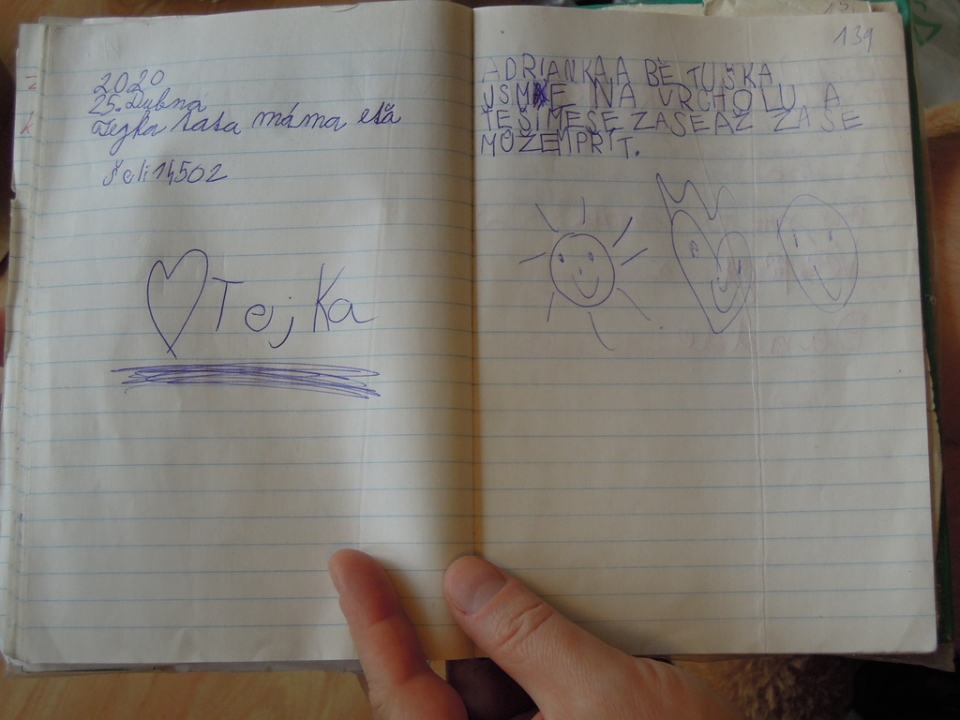 2020
25. Dubna
Tejka kasa máma eša
Šeli 14502
Tejka
139
ADRIANKA A BĚTUŠKA
JSME NA VRCHOLU A
TĚŠÍMESE ZASEAŽ ZA SE
MŮŽEMPŘÍT.